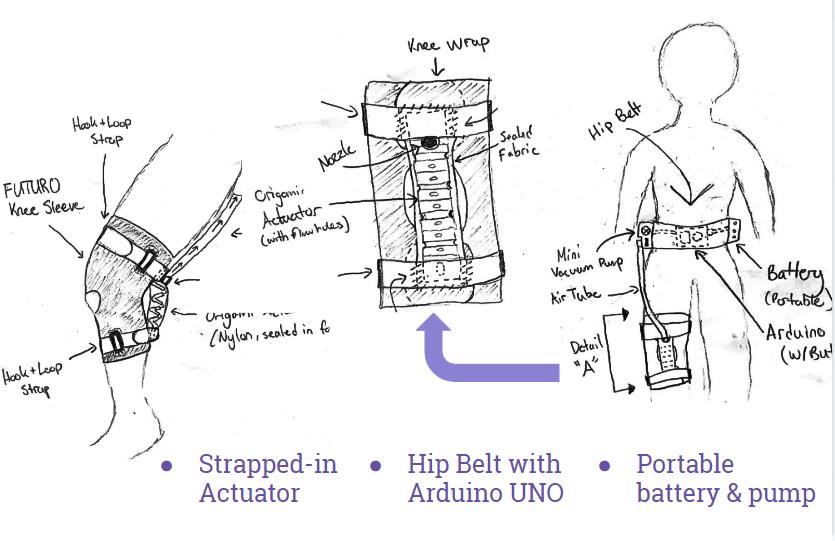 Hook+Loop
Strap
FUTURO
Knee Sleeve
(Nylon, sealed in
Hook+Loop
Strap
Knee Wrap
Nozzle
Sealed
Fabric
Origami
Actuator
(with flow holes)
Hip Belt
Mini
Vacuum Pump
Air Tube
Detail
"A"
Battery
(Portable)
Arduino
(w/But
• Strapped-in
Actuator
• Hip Belt with
Arduino UNO
• Portable
battery & pump